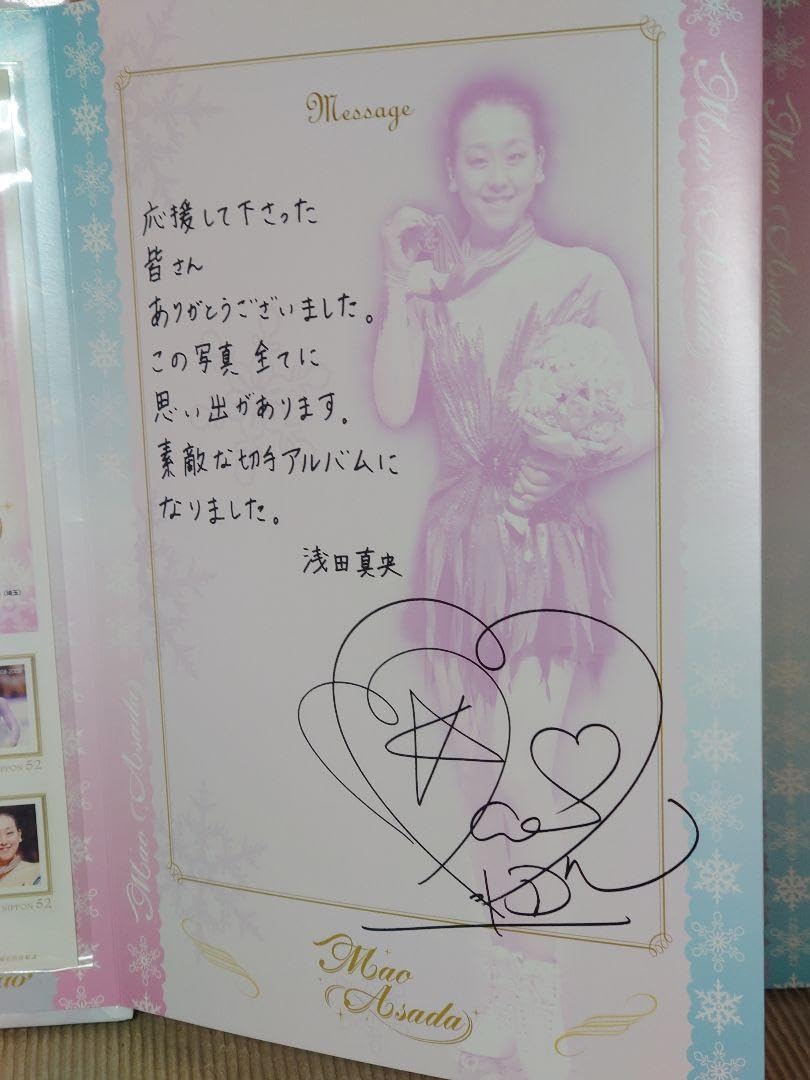 Message
応援して下さった
皆さん
ありがとうございました。
この写真 全てに
思い出があります。
素敵な切手アルバムに
なりました。
浅田真央
Mao Asada
Mao Asada
Mao Asada
Mao Asada
(埼玉)
NIPPON 52
NIPPON 52